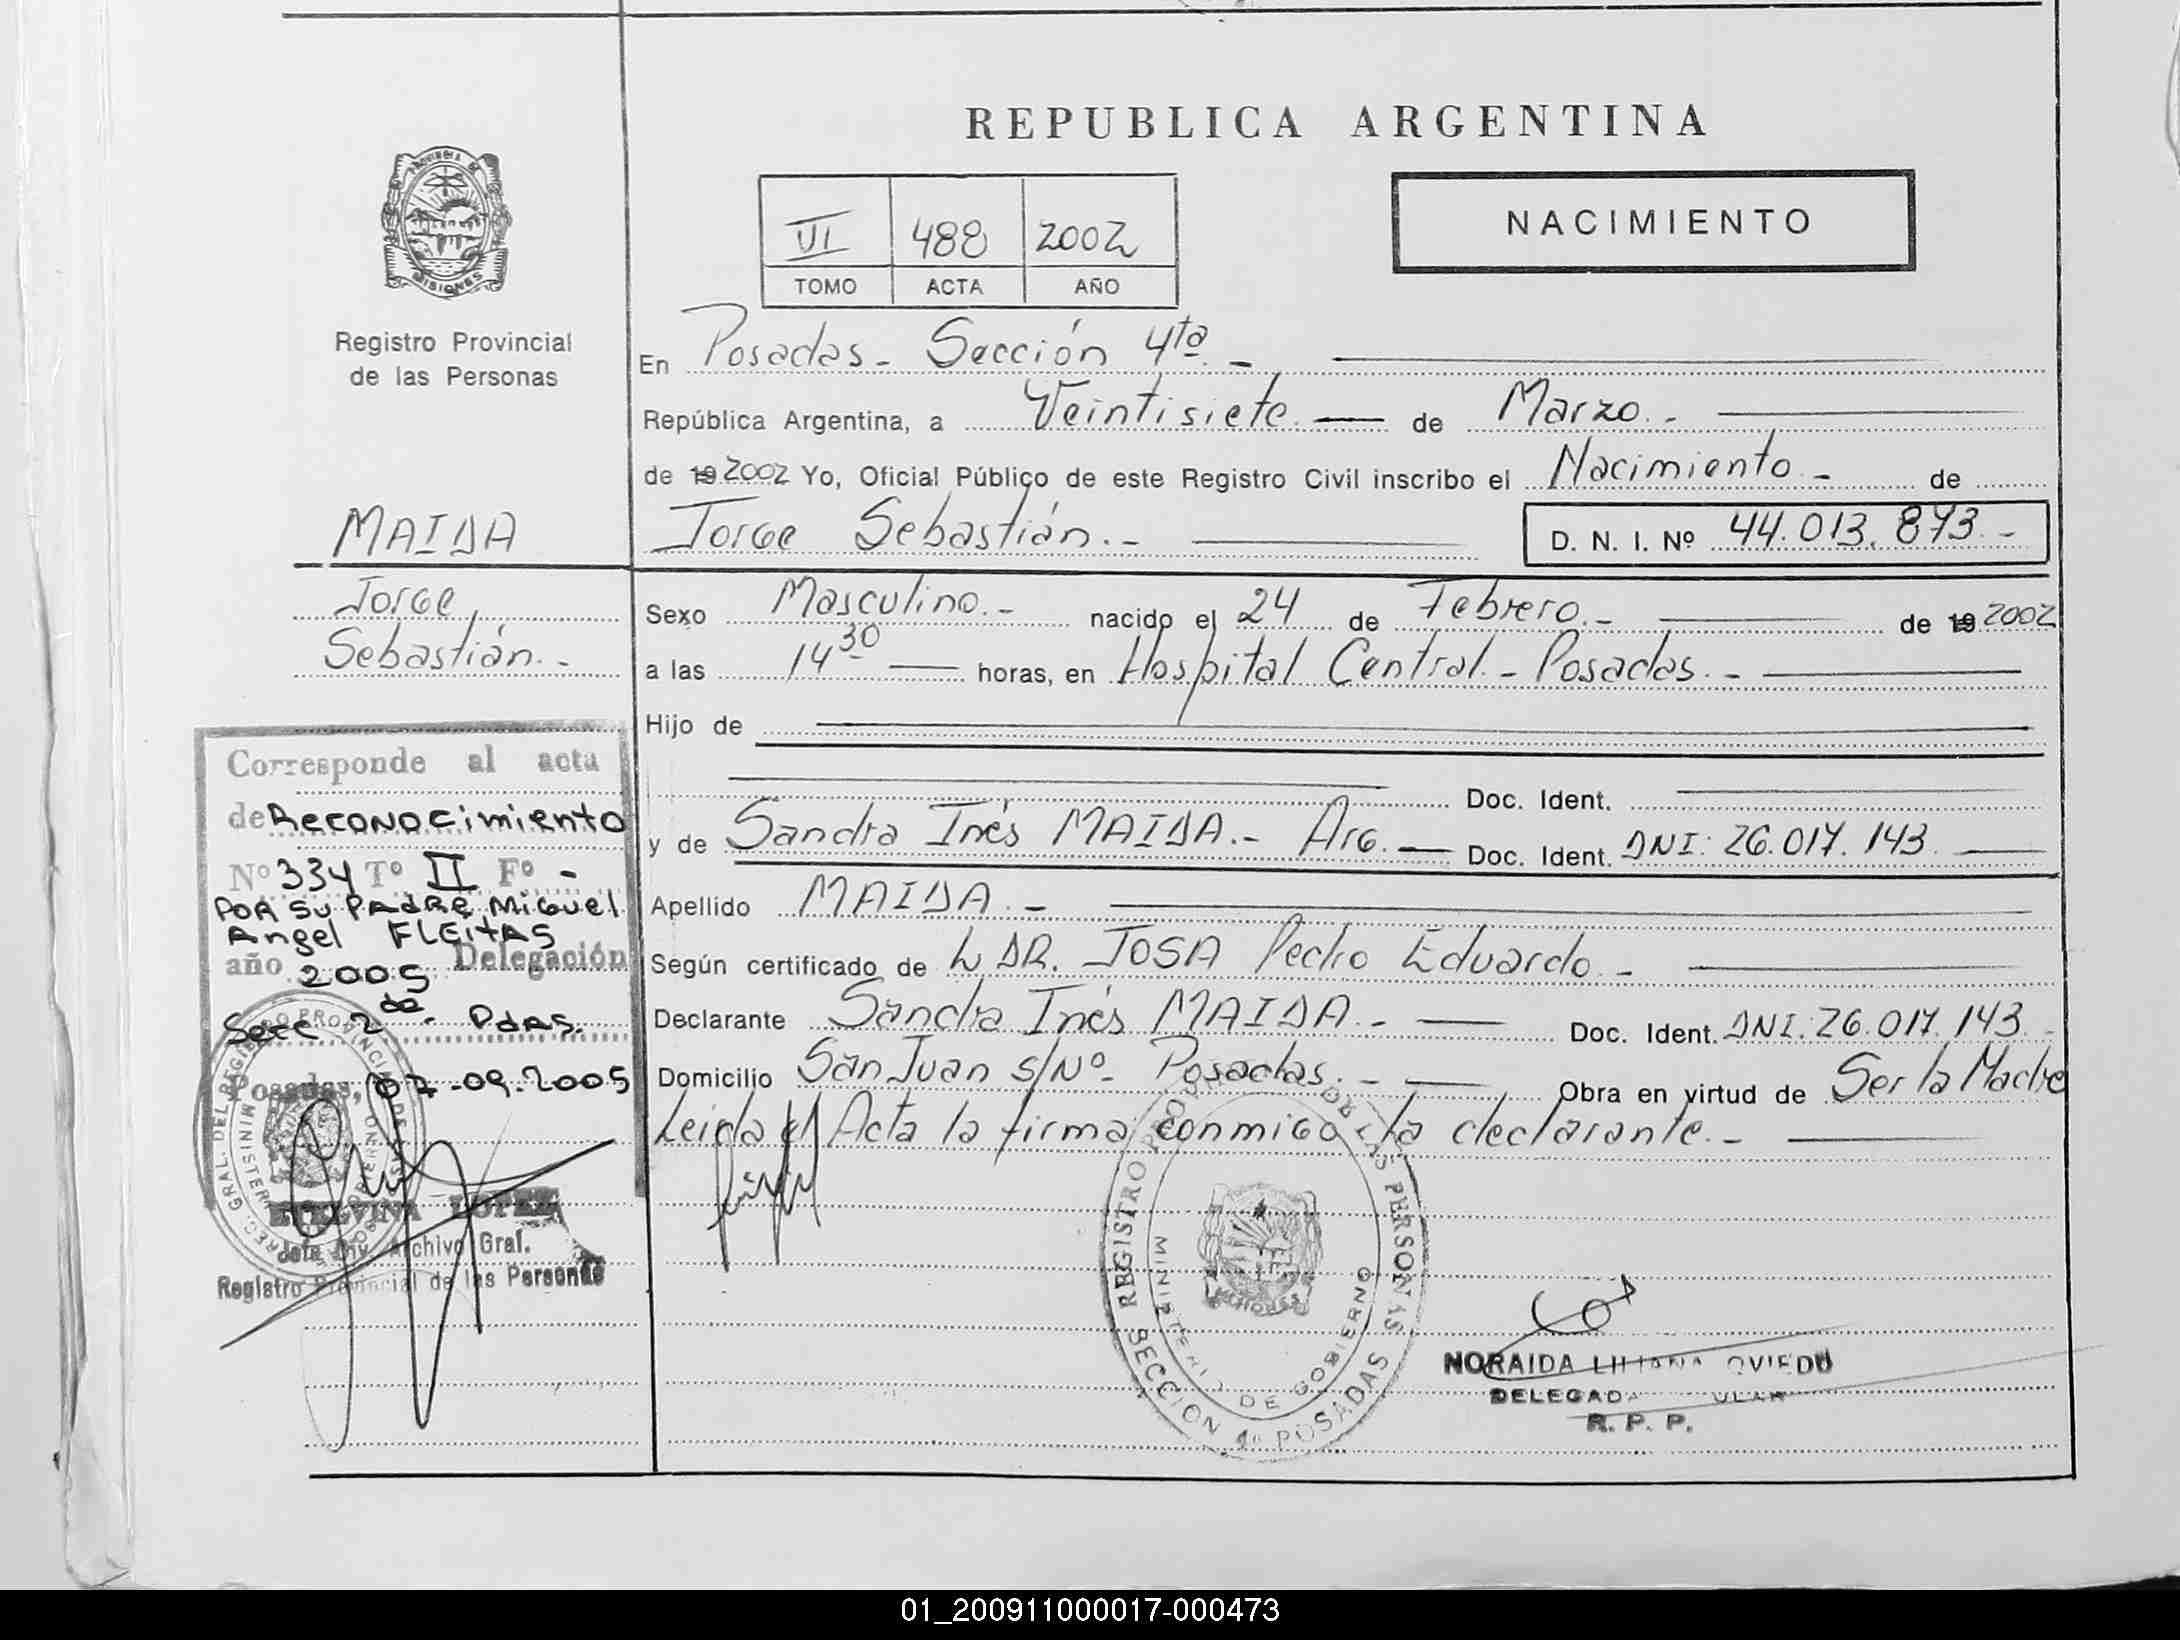 REPUBLICA ARGENTINA
PROVINCIA DE
MISIONES
Registro Provincial
de las Personas
NACIMIENTO
VI 488 2002
TOMO ACTA AÑO
En Posadas - Sección 4ta. -
República Argentina, a Veintisiete. — de Marzo. -
de 19 2002 Yo, Oficial Público de este Registro Civil inscribo el Nacimiento. - de
Jorge Sebastián. - D. N. I. Nº 44.013.873. -
MAIDA
Jorge
Sebastián. -
Sexo Masculino. - nacido el 24 de Febrero. - de 19 2002
a las 14 30 — horas, en Hospital Central. - Posadas. -
Hijo de
Doc. Ident.
y de Sandra Inés MAIDA. - Arg. — Doc. Ident. DNI: 26.017.143.
Apellido MAIDA. -
Según certificado de DR. JOSA Pedro Eduardo. -
Declarante Sandra Inés MAIDA. - Doc. Ident. DNI: 26.017.143. -
Domicilio San Juan s/Nº - Posadas. - Obra en virtud de Ser la Madre
Leida el Acta la firma conmigo la declarante. -
Corresponde al acta
de Reconocimiento
Nº 334 Tº II Fº -
POR SU PADRE Miguel
Angel FLEITAS
año 2005 Delegación
Secc 2da. Pdas.
Posadas, 07-09-2005
LOPEZ
Jefa Div. Archivo Gral.
Registro Provincial de las Personas
REGISTRO PROVINCIAL DE LAS PERSONAS
MINISTERIO DE GOBIERNO
MISIONES
SECCION 4º POSADAS
NORAIDA LILIANA OVIEDO
DELEGADA TITULAR
R. P. P.
01_200911000017-000473